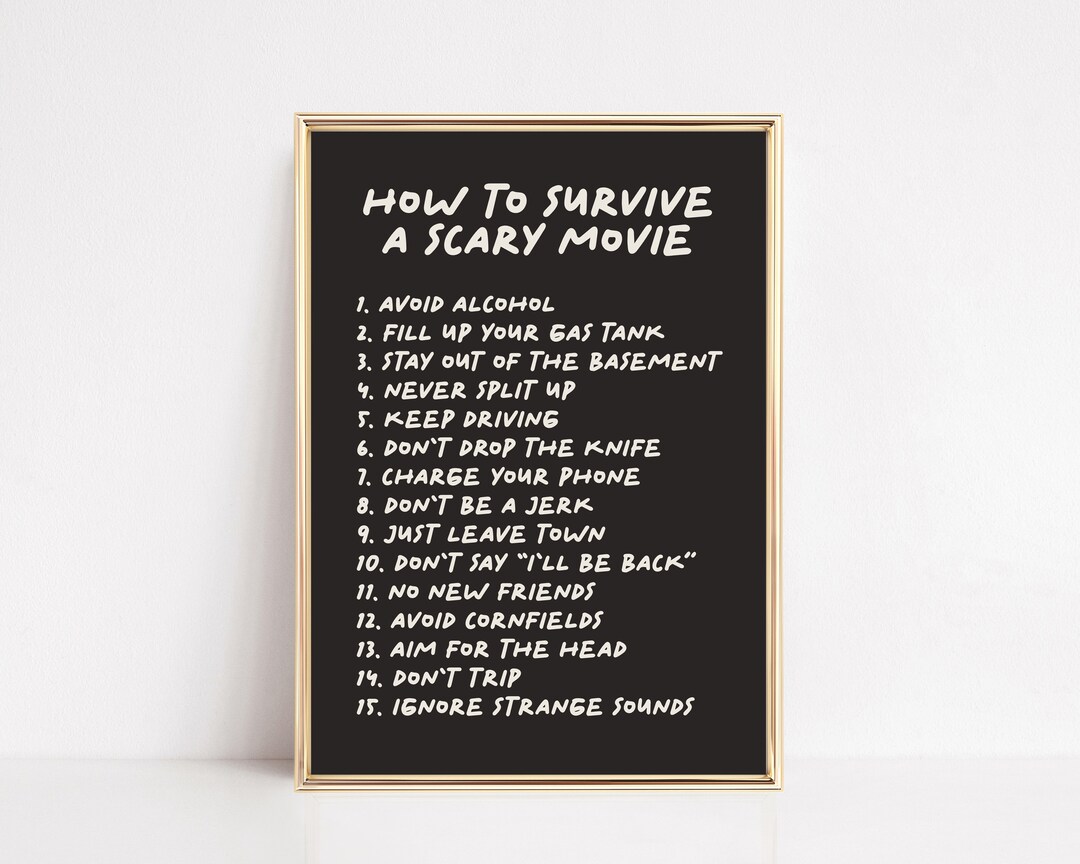 HOW TO SURVIVE
A SCARY MOVIE
1. AVOID ALCOHOL
2. FILL UP YOUR GAS TANK
3. STAY OUT OF THE BASEMENT
4. NEVER SPLIT UP
5. KEEP DRIVING
6. DON'T DROP THE KNIFE
7. CHARGE YOUR PHONE
8. DON'T BE A JERK
9. JUST LEAVE TOWN
10. DON'T SAY "I'LL BE BACK"
11. NO NEW FRIENDS
12. AVOID CORNFIELDS
13. AIM FOR THE HEAD
14. DON'T TRIP
15. IGNORE STRANGE SOUNDS